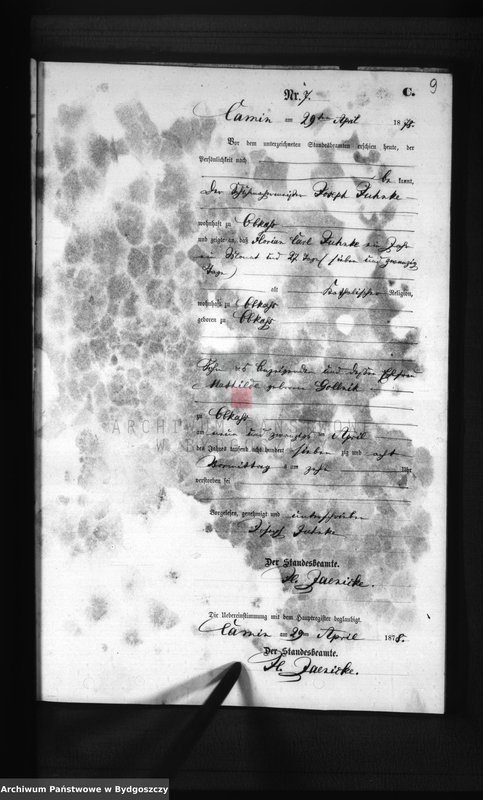 9
Nr. 7. C.
Camin am 29ten April 1878.
Vor dem unterzeichneten Standesbeamten erschien heute, der
Persönlichkeit nach
be kannt,
der Joseph
wohnhaft zu Obkaß
und zeigte an, daß Florian Carl ein Jahr
ein Monat und 27 Tage (sieben und zwanzig
Tage)
alt Katholischer Religion,
wohnhaft zu Obkaß
geboren zu Obkaß
Sohn des Anzeigenden und dessen Ehefrau
Mathilde geborene Gollnik
zu Obkaß
am neun und zwanzigsten April
des Jahres tausend acht hundert sieben zig und acht
Vormittag s um zehn Uhr
verstorben sei
Vorgelesen, genehmigt und unterschrieben
Joseph
Der Standesbeamte.
Jaenicke.
Die Uebereinstimmung mit dem Hauptregister beglaubigt.
Camin am 29ten April 1878.
Der Standesbeamte.
Jaenicke.
Archiwum Państwowe w Bydgoszczy